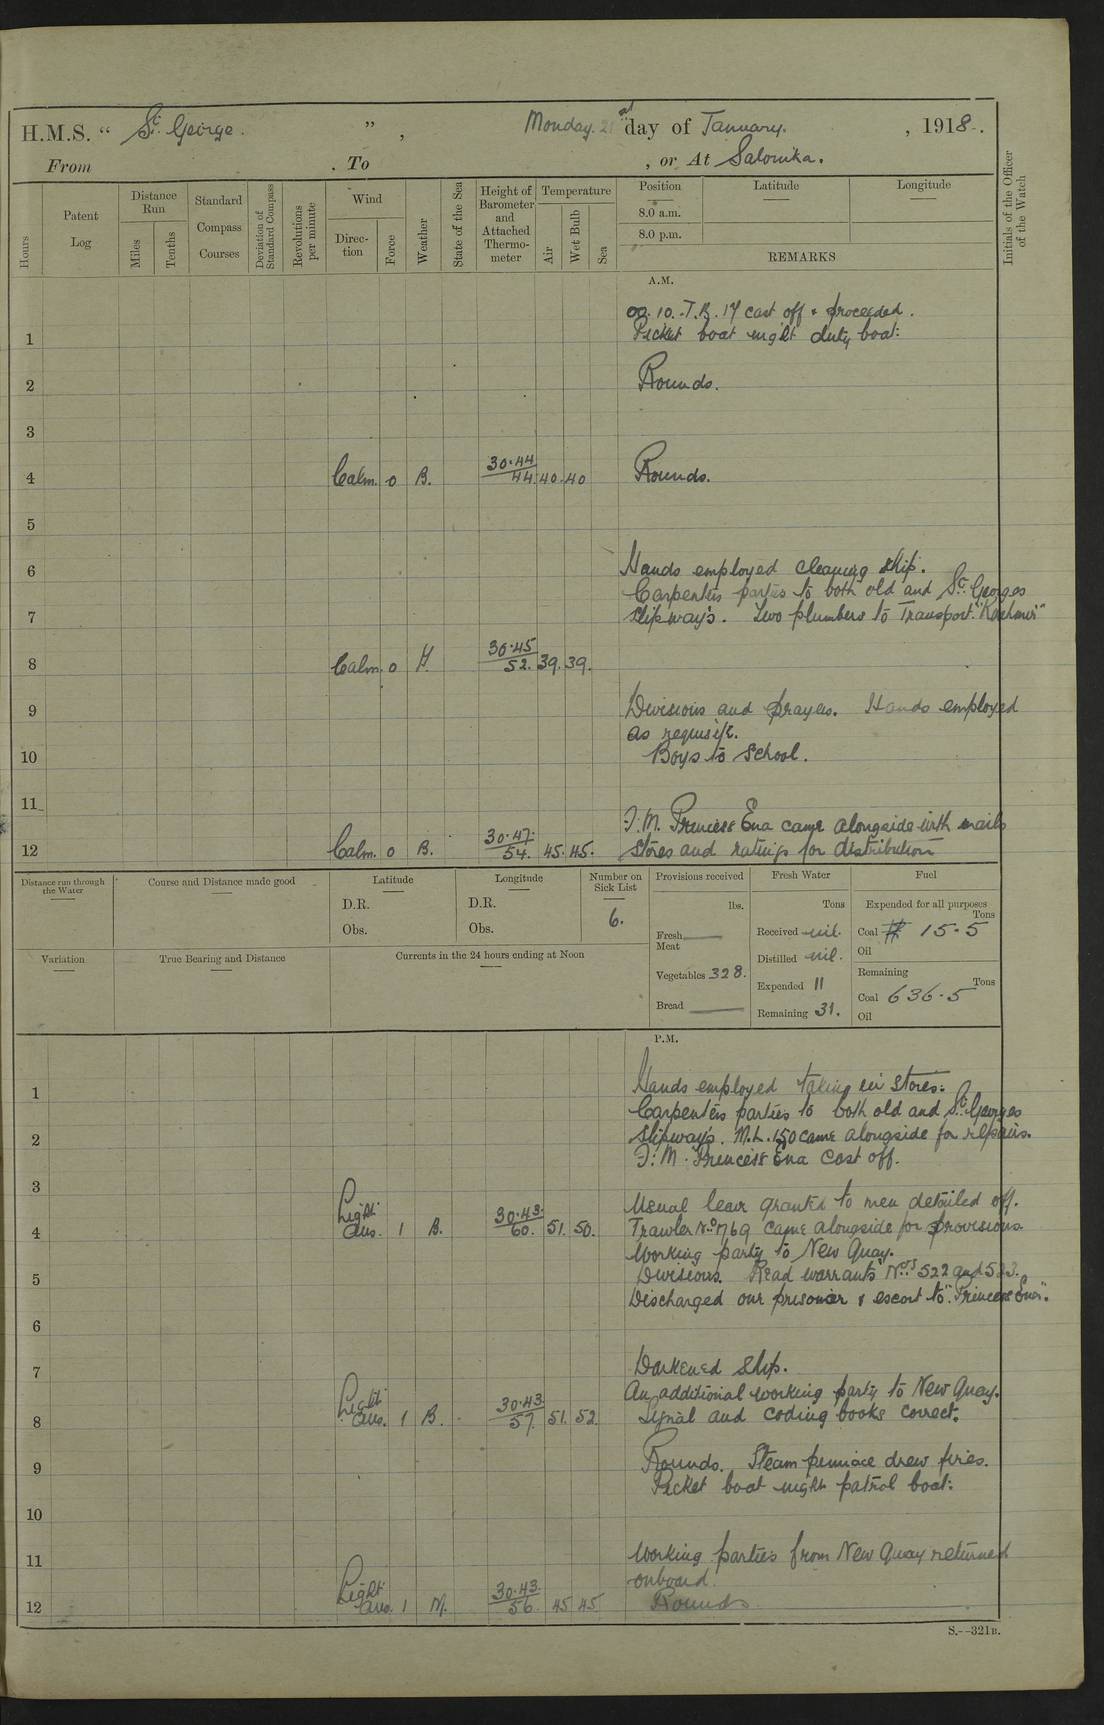 H.M.S. “ St. George. ” , Monday. 21st day of January. , 1918.
From . To , or At Salonika.
Hours
Patent Log
Distance Run
Miles
Tenths
Standard Compass Courses
Deviation of Standard Compass
Revolutions per minute
Wind
Direction
Force
Weather
State of the Sea
Height of Barometer and Attached Thermometer
Temperature
Air
Wet Bulb
Sea
Position
8.0 a.m.
8.0 p.m.
Latitude
Longitude
REMARKS
Initials of the Officer of the Watch
A.M.
00.10. T.B. 17 cast off & proceeded.
1 Picket boat night duty boat:
2 Rounds.
3
4 Calm. 0 B. 30.44 44. 40. 40 Rounds.
5
6 Hands employed cleaning ship.
Carpenters parties to both old and St. Georges
7 slipway's. Two plumbers to Transport.
8 Calm. 0 30.45 52. 39. 39.
9 Divisions and prayers. Hands employed
as requisite.
10 Boys to School.
11
F.M. Princess Ena came alongside with mails
12 Calm. 0 B. 30.47. 54. 45. 45. Stores and ratings for distribution
Distance run through the Water
Course and Distance made good
Latitude
D.R.
Obs.
Longitude
D.R.
Obs.
Number on Sick List
6.
Provisions received
lbs.
Fresh Meat
Vegetables 328.
Bread
Fresh Water
Tons
Received nil.
Distilled nil.
Expended 11
Remaining 31.
Fuel
Expended for all purposes
Tons
Coal 15.5
Oil
Remaining
Tons
Coal 636.5
Oil
Variation
True Bearing and Distance
Currents in the 24 hours ending at Noon
P.M.
1 Hands employed taking in stores:
Carpenters parties to both old and St. Georges
2 slipway's. M.L. 150 came alongside for repairs.
F.M. Princess Ena cast off.
3
Usual leave granted to men detailed off.
4 Light airs. 1 B. 30.43. 60. 51. 50. Trawler No. 1769 came alongside for provisions
Working party to New Quay.
5 Divisions. Read warrants Nos. 522 and 523.
Discharged our prisoner & escort to "Princess Ena".
6
7 Darkened ship.
An additional working party to New Quay.
8 Light airs. 1 B. 30.43 57. 51. 52. Signal and coding books correct.
9 Rounds. Steam pinnace drew fires.
Picket boat night patrol boat:
10
11 Working parties from New Quay returned
onboard.
12 Light airs. 1 M. 30.43. 56. 45 45 Rounds
S.--321B.